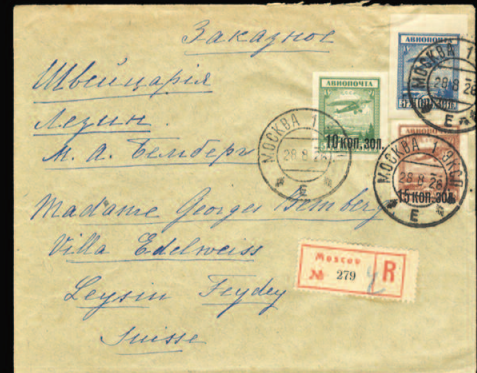 Заказное
Швейцарія
Лезин.
М. А. Бемберг
Madame Georges Bemberg
Villa Edelweiss
Leysin Feydey
Suisse
АВИОПОЧТА
АВИОПОЧТА
10 КОП. ЗОЛ.
АВИОПОЧТА
15 КОП. ЗОЛ.
МОСКВА 1
28 8 26
Е
МОСКВА 1
28 8 26
Е
МОСКВА 1
28 8 26
Е
Moscou
№ 279
R